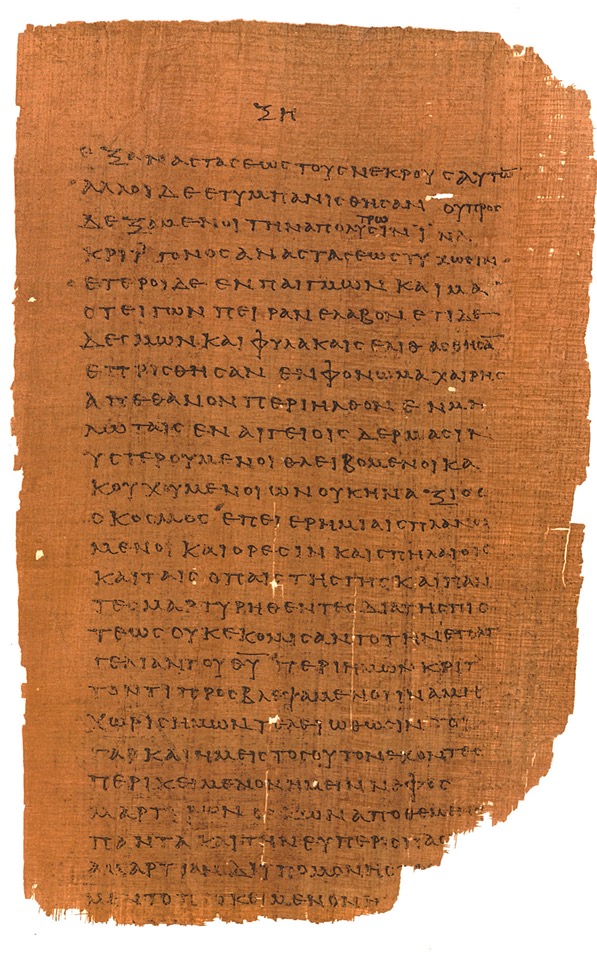 ΞΗ
ΕΞ ΑΝΑϹΤΑϹΕΩϹ ΤΟΥϹ ΝΕΚΡΟΥϹ ΑΥΤΩ̅
ΑΛΛΟΙ ΔΕ ΕΤΥΜΠΑΝΙϹΘΗϹΑΝ ΟΥ ΠΡΟϹ
ΔΕΞΑΜΕΝΟΙ ΤΗΝ ΑΠΟΛΥΤΡΩϹΙΝ ΪΝΑ
ΚΡΙΤΤΟΝΟϹ ΑΝΑϹΤΑϹΕΩϹ ΤΥΧΩϹΙΝ
ΕΤΕΡΟΙ ΔΕ ΕΝΠΑΙΓΜΩΝ ΚΑΙ ΜΑ
ϹΤΕΙΓΩΝ ΠΕΙΡΑΝ ΕΛΑΒΟΝ ΕΤΙ ΔΕ
ΔΕϹΜΩΝ ΚΑΙ ΦΥΛΑΚΑΙϹ ΕΛΙΘΑϹΘΗϹΑ̅
ΕΠΡΙϹΘΗϹΑΝ ΕΝ ΦΟΝΩ ΜΑΧΑΙΡΗϹ
ΑΠΕΘΑΝΟΝ ΠΕΡΙΗΛΘΟΝ ΕΝ ΜΗ
ΛΩΤΑΙϹ ΕΝ ΑΙΓΕΙΟΙϹ ΔΕΡΜΑϹΙΝ
ΥϹΤΕΡΟΥΜΕΝΟΙ ΘΛΕΙΒΟΜΕΝΟΙ ΚΑ
ΚΟΥΧΟΥΜΕΝΟΙ ΩΝ ΟΥΚ ΗΝ ΑΞΙΟϹ
Ο ΚΟϹΜΟϹ ΕΠΕΙ ΕΡΗΜΙΑΙϹ ΠΛΑΝΟΙ
ΜΕΝΟΙ ΚΑΙ ΟΡΕϹΙΝ ΚΑΙ ϹΠΗΛΑΙΟΙϹ
ΚΑΙ ΤΑΙϹ ΟΠΑΙϹ ΤΗϹ ΓΗϹ ΚΑΙ ΠΑΝ
ΤΕϹ ΜΑΡΤΥΡΗΘΕΝΤΕϹ ΔΙΑ ΤΗϹ ΠΙϹ
ΤΕΩϹ ΟΥΚ ΕΚΟΜΙϹΑΝΤΟ ΤΗΝ ΕΠΑΓ
ΓΕΛΙΑΝ ΤΟΥ Θ̅Υ̅ ΠΕΡΙ ΗΜΩΝ ΚΡΙΤ
ΤΟΝ ΤΙ ΠΡΟϹΒΛΕΨΑΜΕΝΟΙ ΙΝΑ ΜΗ
ΧΩΡΙϹ ΗΜΩΝ ΤΕΛΕΙΩΘΩϹΙΝ ΤΟΙ
ΓΑΡ ΚΑΙ ΗΜΕΙϹ ΤΟϹΟΥΤΟΝ ΕΧΟΝΤΕϹ
ΠΕΡΙΚΕΙΜΕΝΟΝ ΗΜΕΙΝ ΝΕΦΟϹ
ΜΑΡΤΥΡΩΝ ΟΓΚΟΝ ΑΠΟΘΕΜΕΝΟΙ
ΠΑΝΤΑ ΚΑΙ ΤΗΝ ΕΥΠΕΡΙϹΠΑϹ
ΑΜΑΡΤΙΑΝ ΔΙ ΥΠΟΜΟΝΗϹ
ΜΕΝ ΤΟΝ ΠΡΟΚΕΙΜΕΝΟΝ Η